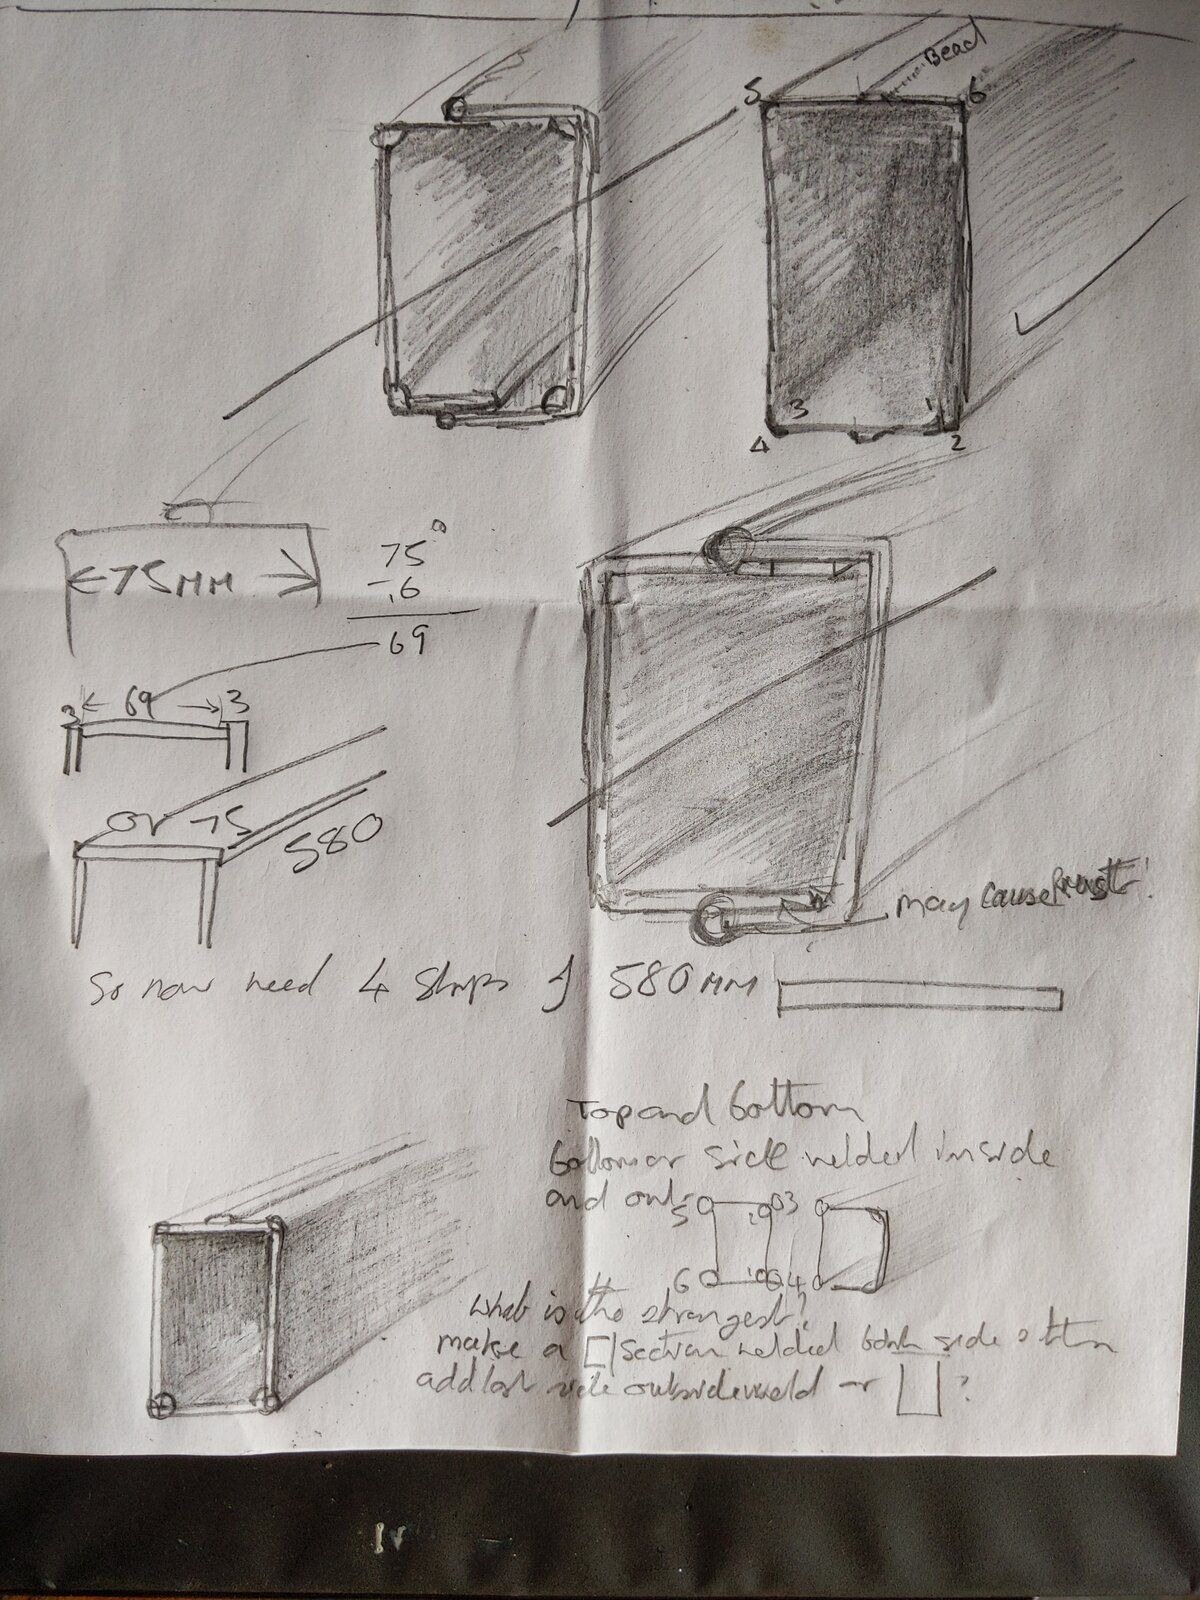 Bead
5
6
3
1
4
2
75MM
75
- .6
69
3 69 3
or 75
580
May cause rust!
So now need 4 strips of 580MM
Top and bottom
bottom or side welded inside
and out
5 3
6 4
What is the strongest?
make a section welded both side then
add last side outside weld or ?